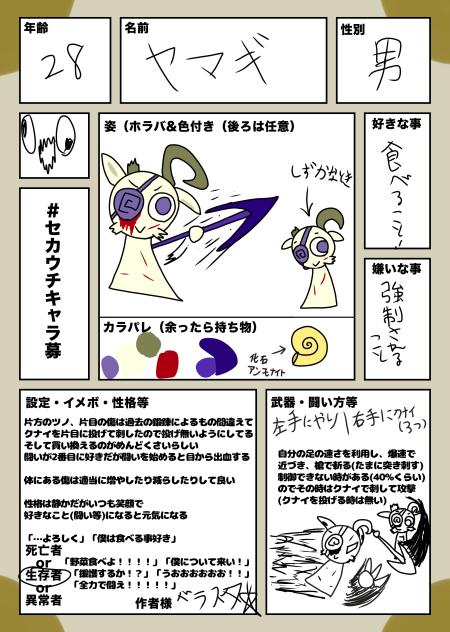 年齢
28
名前
ヤマギ
性別
男
#セカウチキャラ募
姿（ホラバ&色付き（後ろは任意）
しずか出とき
好きな事
食べること!
嫌いな事
強制されること
カラパレ（余ったら持ち物）
化石
アンモナイト
設定・イメボ・性格等
片方のツノ、片目の傷は過去の鍛錬によるもの間違えて
クナイを片目に投げて刺したので投げ無いようにしてる
そして買い換えるのがめんどくさいらしい
闘いが2番目に好きだが闘いを始めると目から出血する
体にある傷は適当に増やしたり減らしたりして良い
性格は静かだがいつも笑顔で
好きなこと(闘い等)になると元気になる
「…よろしく」「僕は食べる事好き」
死亡者
or
生存者
or
異常者
「野菜食べよ！！！！」「僕について来い！」
「援護するか！？」「うおおおおおお！！」
「全力で闘え！！！！！」
作者様
武器・闘い方等
左手にやり/右手にクナイ
(3つ)
自分の足の速さを利用し、爆速で
近づき、槍で斬る(たまに突き刺す)
制御できない時がある(40%くらい)
のでその時はクナイで刺して攻撃
(クナイを投げる時は無い)